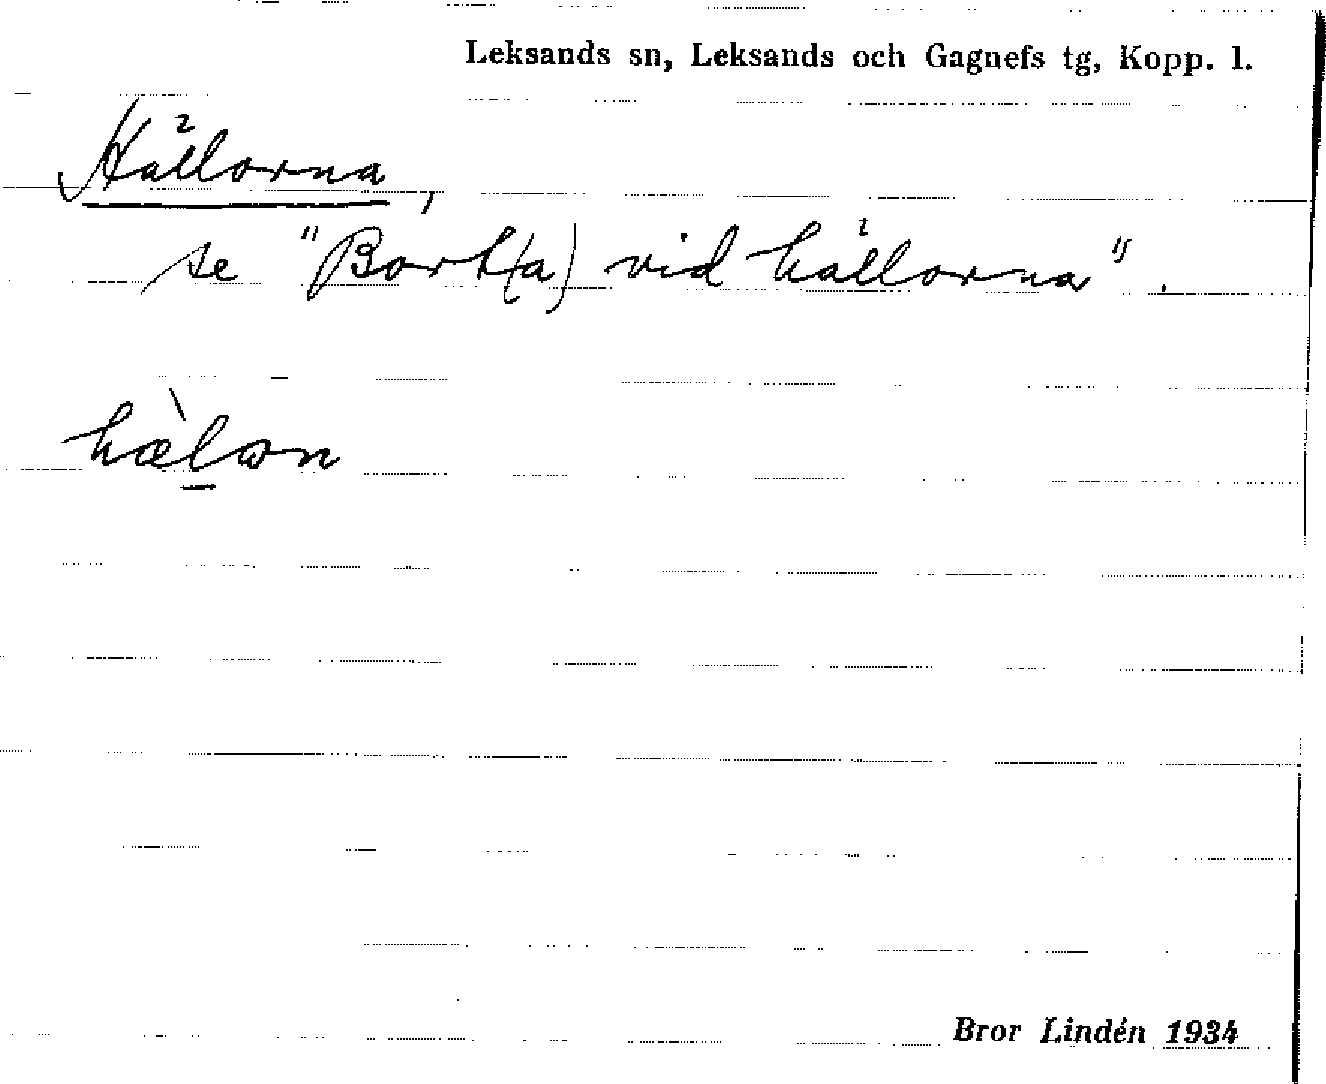 Leksands sn, Leksands och Gagnefs tg, Kopp. l.
Hällorna,
se "Bort(a) vid hällorna".
hæ̀lọn
Bror Lindén 1934